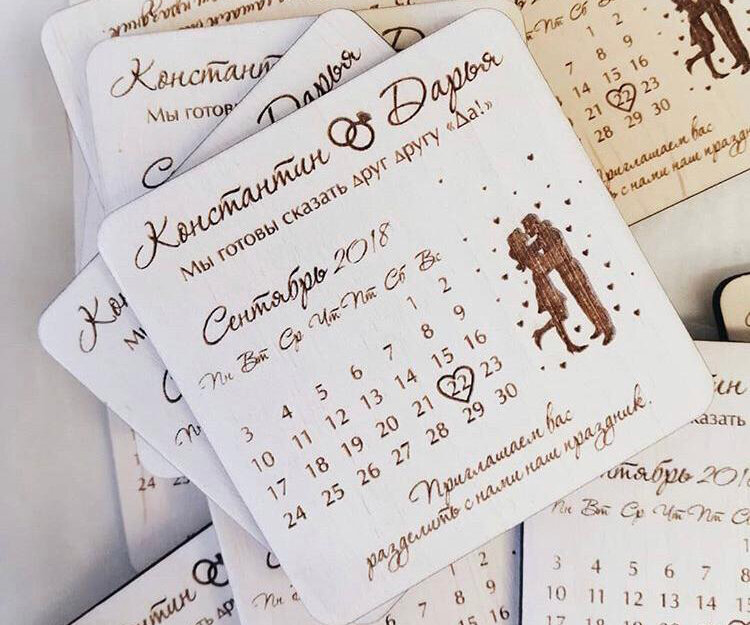 Константин Дарья
Мы готовы сказать друг другу «Да!»
Сентябрь 2018
Пн Вт Ср Чт Пт Сб Вс
1 2
3 4 5 6 7 8 9
10 11 12 13 14 15 16
17 18 19 20 21 22 23
24 25 26 27 28 29 30
Приглашаем вас
разделить с нами наш праздник.
Константин
Мы готовы
Дарья
С
1 2
7 8 9
14 15 16
21 22 23
28 29 30
Приглашаем вас
с нами наш праздник
Ко
Мы
24 25
Константин
сказать
2018
Пн Вт Ср Чт Пт С
3 4 5 6 7 8
10 11 12 13 14 15
Пн
1 2
7 8 9
15 16